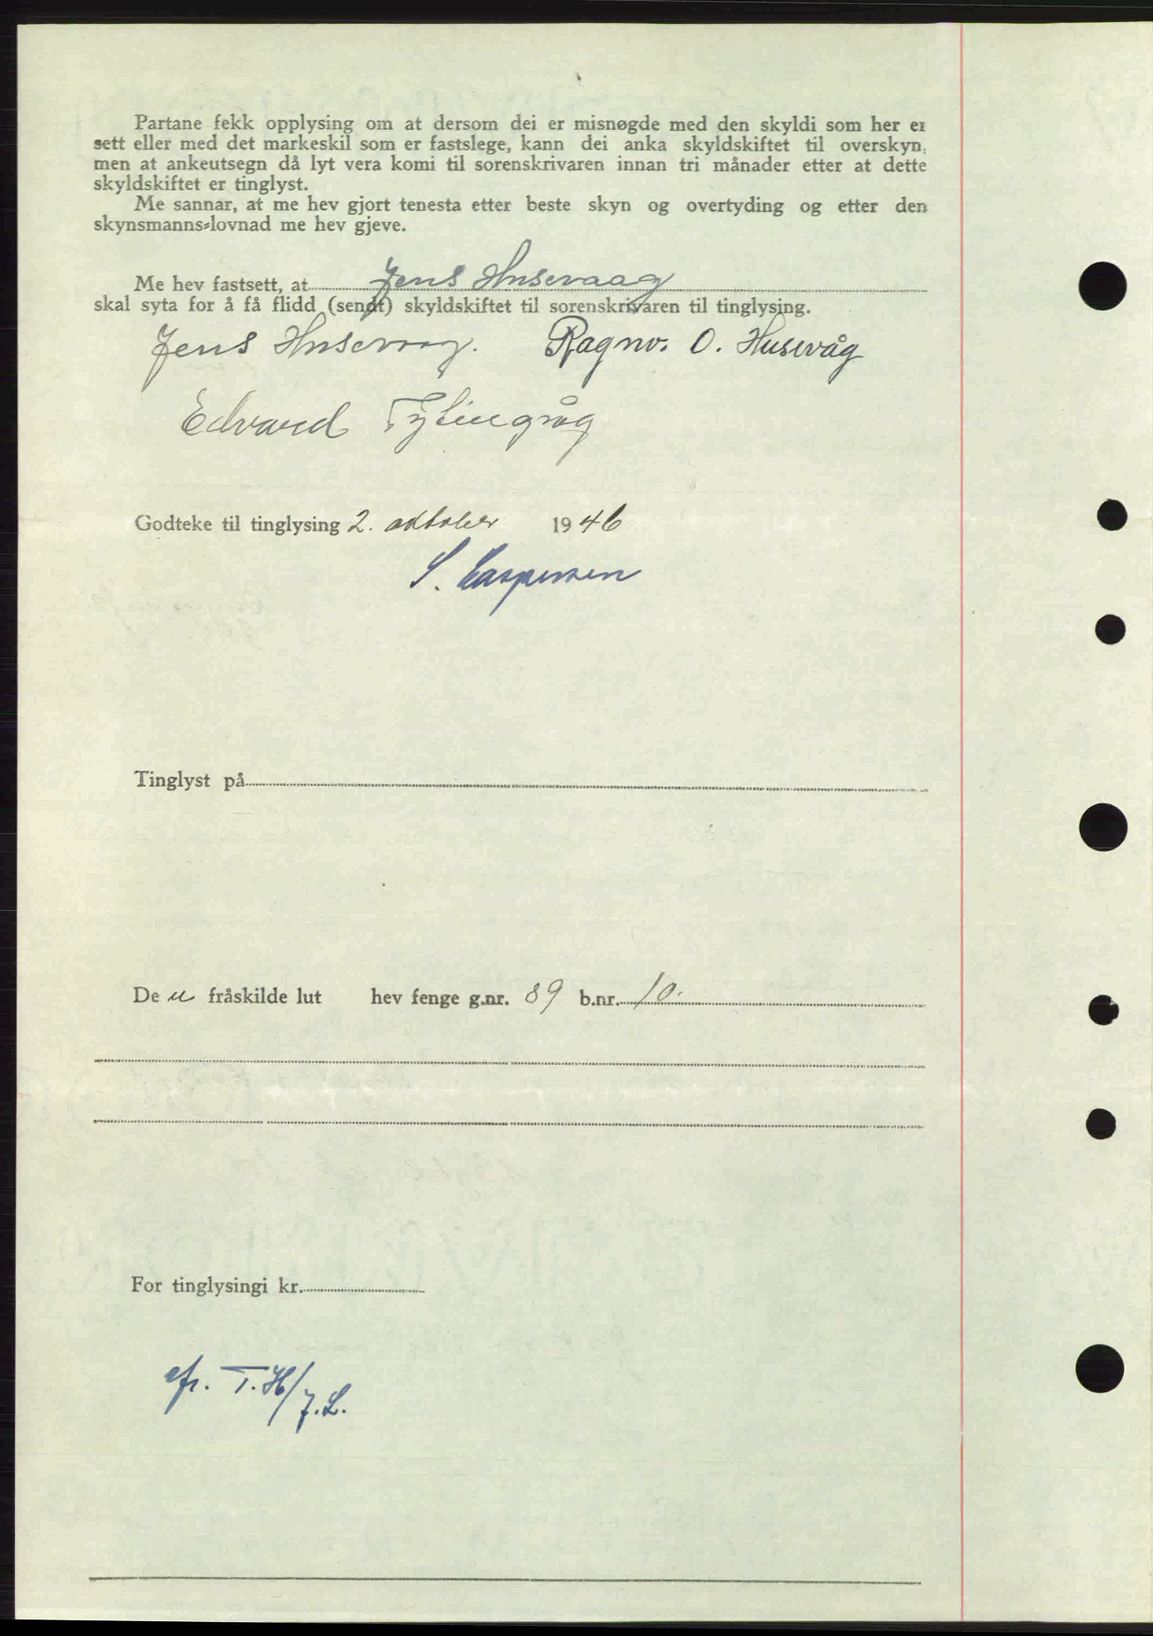 Partane fekk opplysing om at dersom dei er misnøgde med den skyldi som her er
sett eller med det markeskil som er fastslege, kann dei anka skyldskiftet til overskyn,
men at ankeutsegn då lyt vera komi til sorenskrivaren innan tri månader etter at dette
skyldskiftet er tinglyst.
Me sannar, at me hev gjort tenesta etter beste skyn og overtyding og etter den
skynsmanns-lovnad me hev gjeve.
Me hev fastsett, at Jens Husevaag
skal syta for å få flidd (sendt) skyldskiftet til sorenskrivaren til tinglysing.
Jens Husevaag. Ragnv. O. Husevåg
Edvard
Godteke til tinglysing 2. oktober 1946
S. Caspersen
Tinglyst på
De n fråskilde lut hev fenge g.nr. 89 b.nr. 10.
For tinglysingi kr.
T.H/J.L.